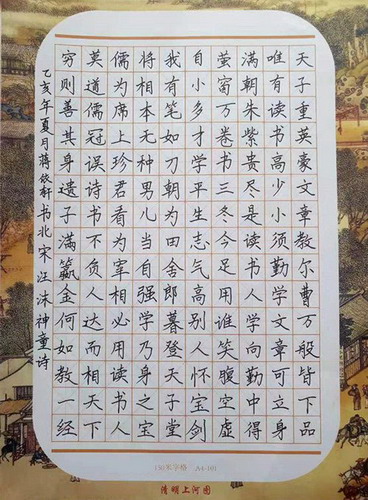 天子重英豪文章教尔曹万般皆下品
唯有读书高少小须勤学文章可立身
满朝朱紫贵尽是读书人学向勤中得
萤窗万卷书三冬今足用谁笑腹空虚
自小多才学平生志气高别人怀宝剑
我有笔如刀朝为田舍郎暮登天子堂
将相本无种男儿当自强学乃身之宝
儒为席上珍君看为宰相必用读书人
莫道儒冠误诗书不负人达而相天下
穷则善其身遗子满籝金何如教一经
乙亥年夏月蒋轩书北宋汪洙神童诗
150米字格 A4-101
清明上河图